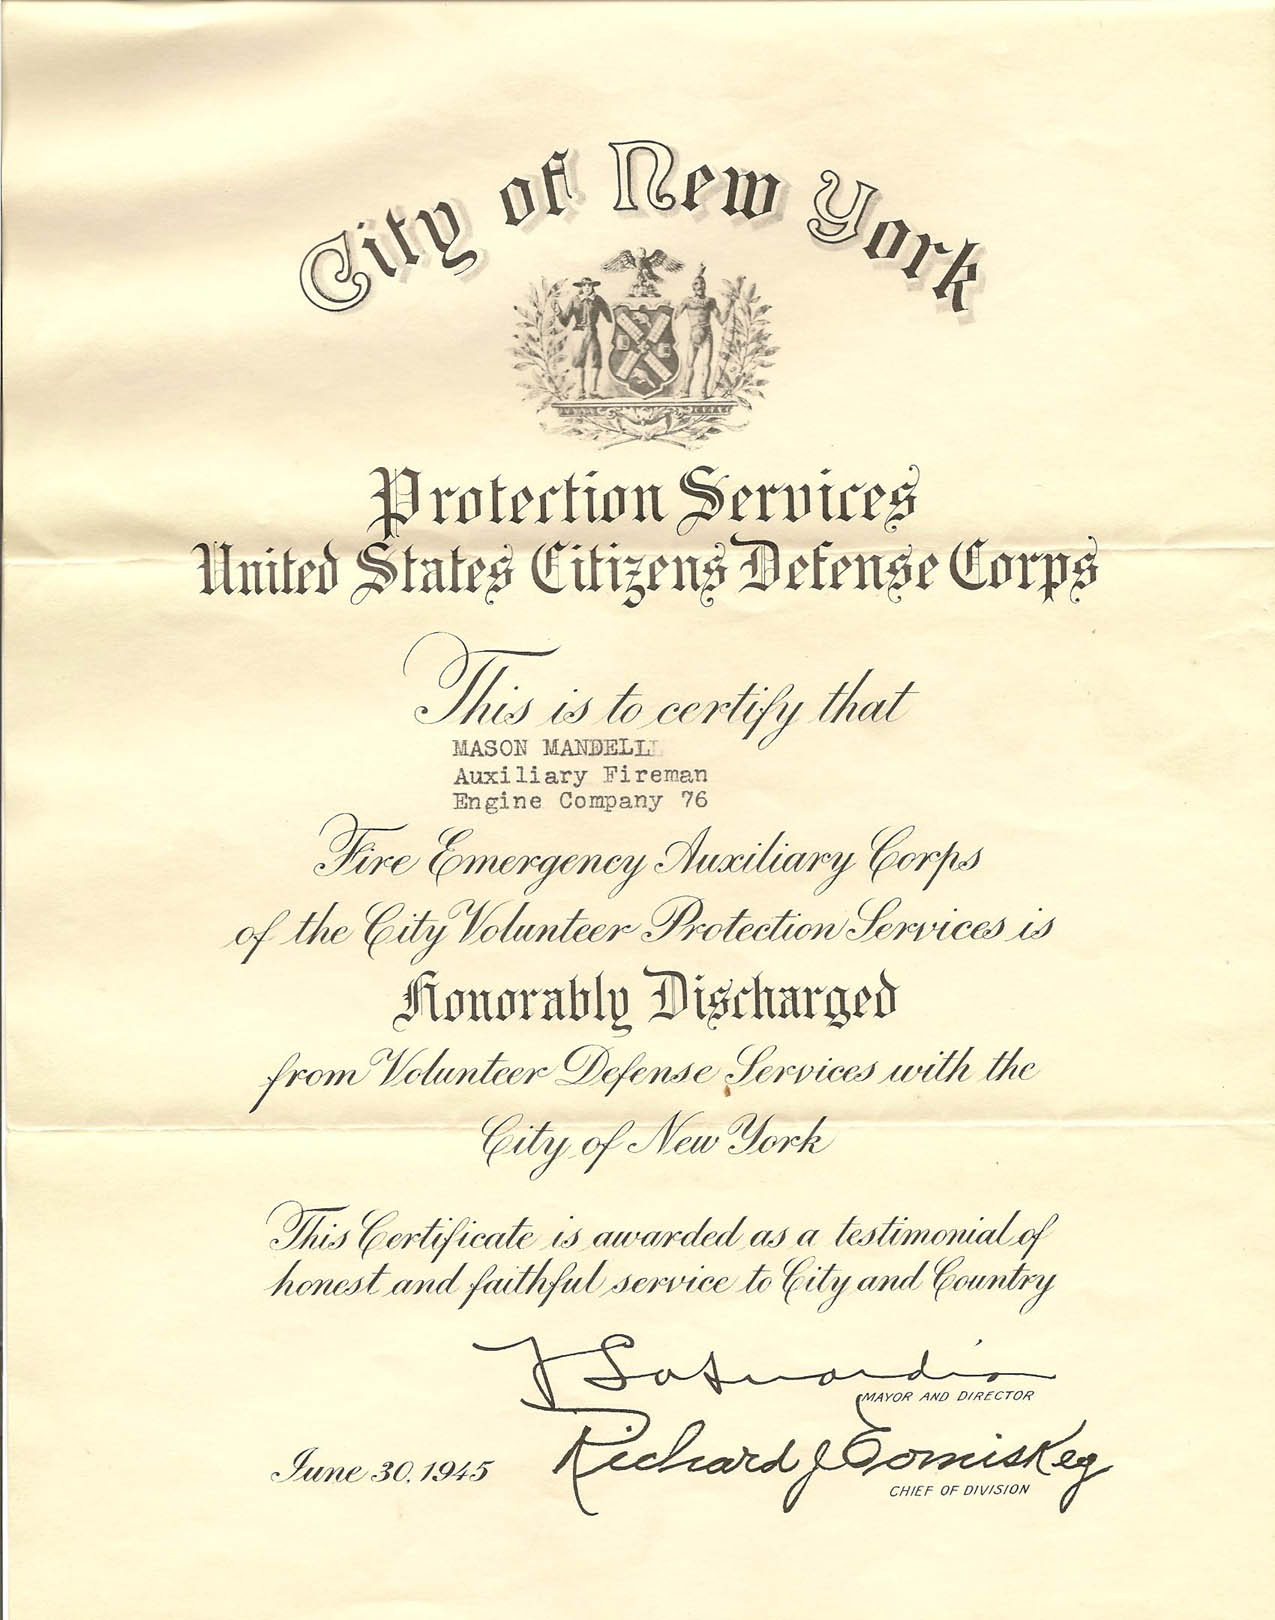 City of New York
Protection Services
United States Citizens Defense Corps
This is to certify that
MASON MANDELL
Auxiliary Fireman
Engine Company 76
Fire Emergency Auxiliary Corps
of the City Volunteer Protection Services is
Honorably Discharged
from Volunteer Defense Services with the
City of New York
This Certificate is awarded as a testimonial of
honest and faithful service to City and Country
F LaGuardia
MAYOR AND DIRECTOR
June 30, 1945
Richard J Comiskey
CHIEF OF DIVISION